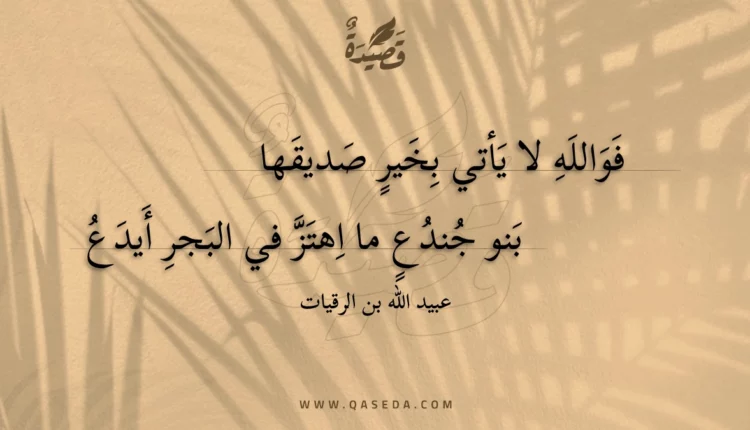 قَصِيْدَةٌ
فَوَاللَهِ لا يَأتي بِخَيرٍ صَديقَها
بَنو جُندُعٍ ما اِهتَزَّ في البَجرِ أَيدَعُ
عبيد الله بن الرقيات
WWW.QASEDA.COM